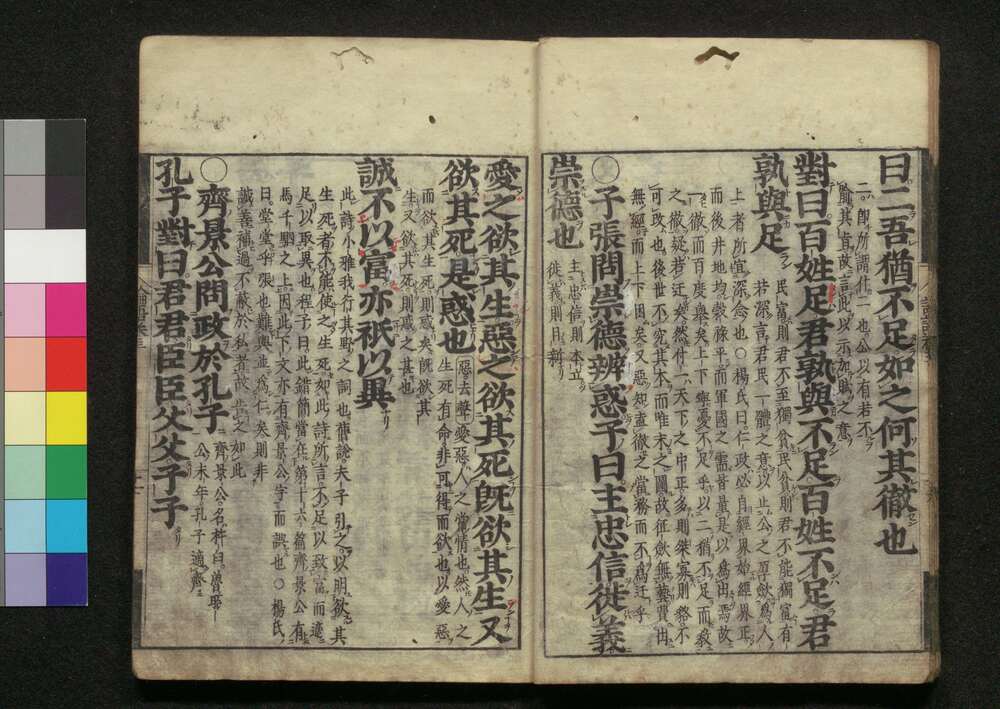 曰二吾猶不足如之何其徹也
二即所謂什二也公以有若不
喩其旨故言此以示加賦之意
對曰百姓足君孰與不足百姓不足君
孰與足
民富則君不至獨貧民貧則君不能獨富有
若深言君民一體之意以止公之厚斂爲人
上者所宜深念也○楊氏曰仁政必自經界始經界正
而後井地均穀祿平而軍國之需皆量是以爲出焉故
一徹而百度舉矣上下寧憂不足乎以二猶不足而教
之徹疑若迂矣然什一天下之中正多則桀寡則貉不
可改也後世不究其本而唯末之圖故征斂無藝費出
無經而上下困矣又惡知盍徹之當務而不爲迂乎
○子張問崇德辨惑子曰主忠信徙義
崇德也
主忠信則本立
徙義則日新
愛之欲其生惡之欲其死旣欲其生又
欲其死是惑也
惡去聲愛惡人之常情也然人之
生死有命非可得而欲也以愛惡
而欲其生死則惑矣旣欲其
生又欲其死則惑之甚也
誠不以富亦祇以異
此詩小雅我行其野之詞也舊說夫子引之以明欲其
生死者不能使之生死如此詩所言不足以致富而適
足以取異也程子曰此錯簡當在第十六篇齊景公有
馬千駟之上因此下文亦有齊景公字而誤也○楊氏
曰堂堂乎張也難與並爲仁矣則非
誠善補過不蔽於私者故告之如此
○齊景公問政於孔子
齊景公名杵臼魯昭
公末年孔子適齊
孔子對曰君君臣臣父父子子